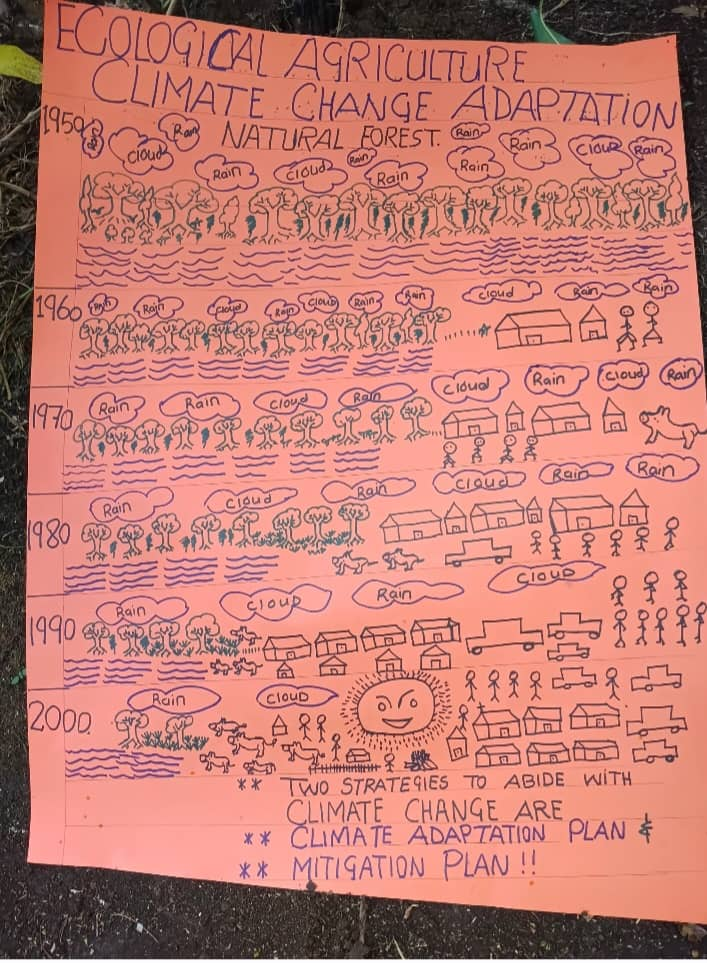 ECOLOGICAL AGRICULTURE
CLIMATE CHANGE ADAPTATION
1950 Rain NATURAL FOREST. Rain Rain Cloud Rain
Cloud Rain Cloud Rain Rain Rain
1960 Rain Rain Cloud Rain Cloud Rain Rain Cloud Rain Rain
1970 Rain Rain Cloud Rain Cloud Rain Cloud Rain
1980 Rain Cloud Rain Cloud Rain Rain
1990 Rain CLOUD Rain CLOUD
2000. Rain CLOUD
** TWO STRATEGIES TO ABIDE WITH
CLIMATE CHANGE ARE
** CLIMATE ADAPTATION PLAN &
** MITIGATION PLAN !!